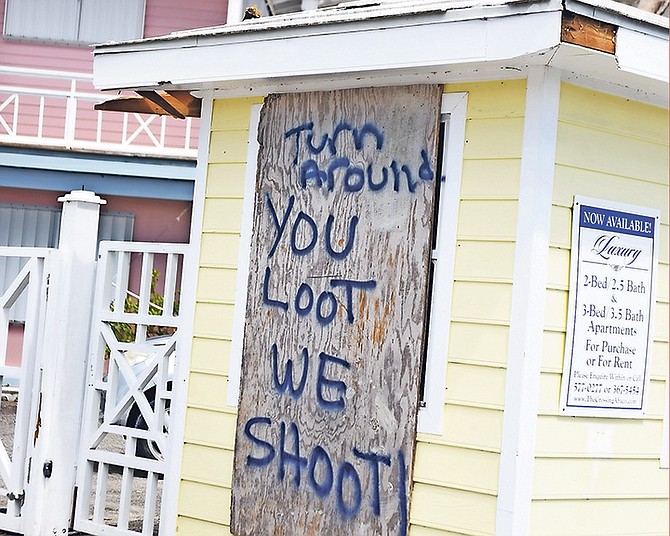 Turn
Around
YOU
LOOT
WE
SHOOT!
NOW AVAILABLE!
Luxury
2-Bed/2.5 Bath
&
3-Bed/3.5 Bath
Apartments
For Purchase
or For Rent
Please Enquire Within or Call
577-0277 or 367-5454